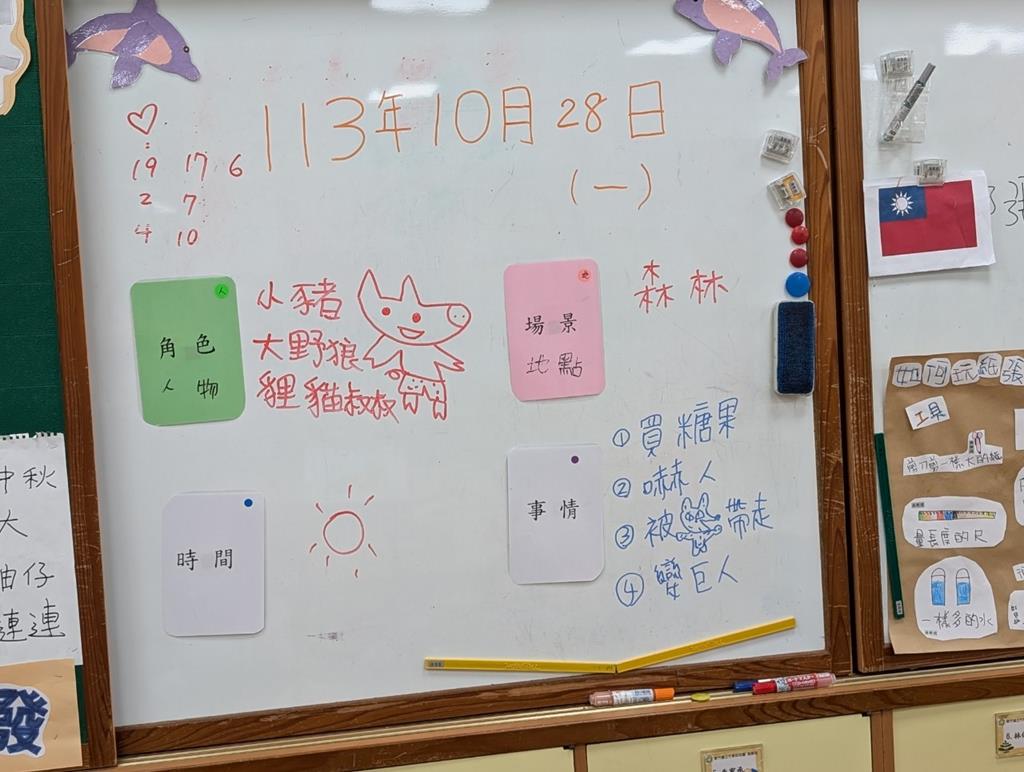 113年10月28日
(一)
19 17 6
2 7
4 10
人
角色
人物
小豬
大野狼
狸貓叔叔
場景
地點
森林 林
時間
事情
①買糖果
②嚇人
③被帶走
④變巨人
中秋
大
油仔
連連
發
如何玩紙張
工具
剪刀剪一張大的紙
量長度的尺
一樣多的水